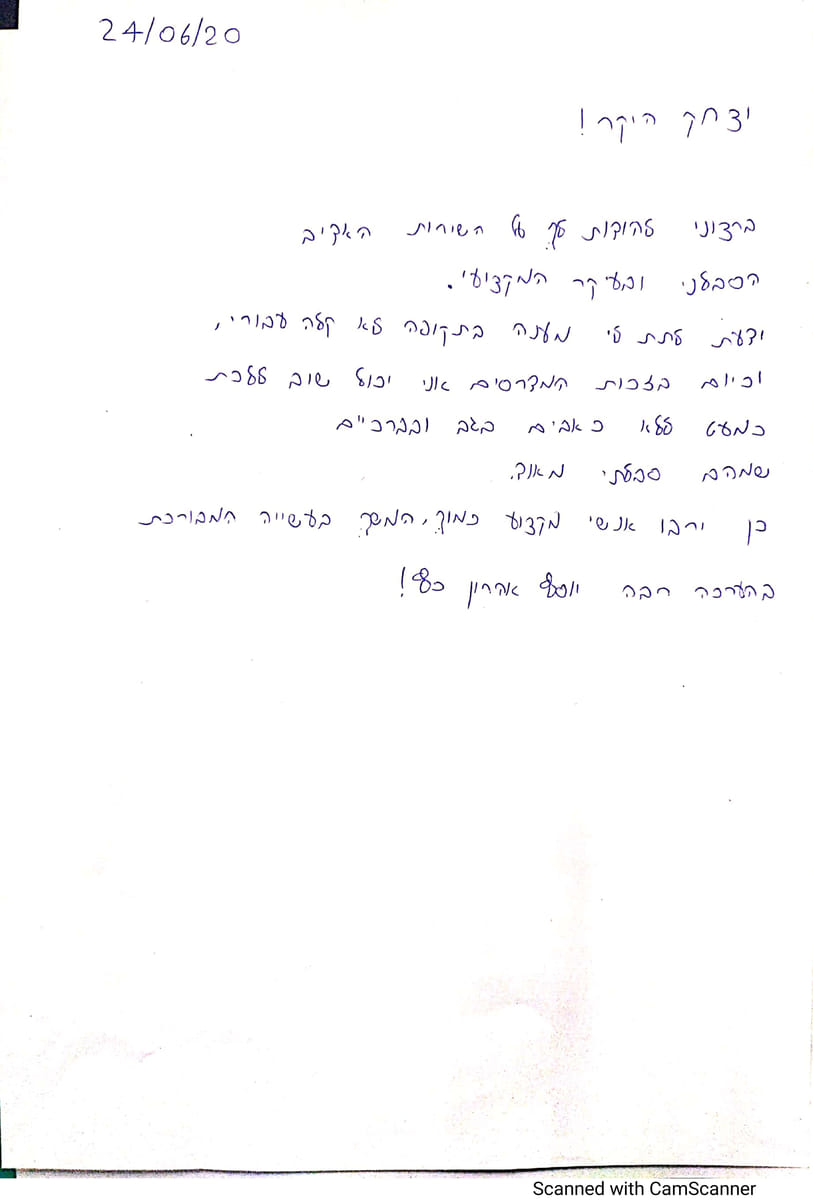 24/06/20
יצחק היקר!
ברצוני להודות לך על השירות האדיב
הסבלני ובעיקר המקצועי.
ידעת לתת לי מענה בתקופה לא קלה עבורי,
וכיום בזכות המדרסים אני יכול שוב ללכת
כמעט ללא כאבים בגב ובברכיים
שמהם סבלתי מאוד.
כן ירבו אנשי מקצוע כמוך, המשך בעשייה המבורכת
בהערכה רבה יוסף אהרון כסף!
Scanned with CamScanner